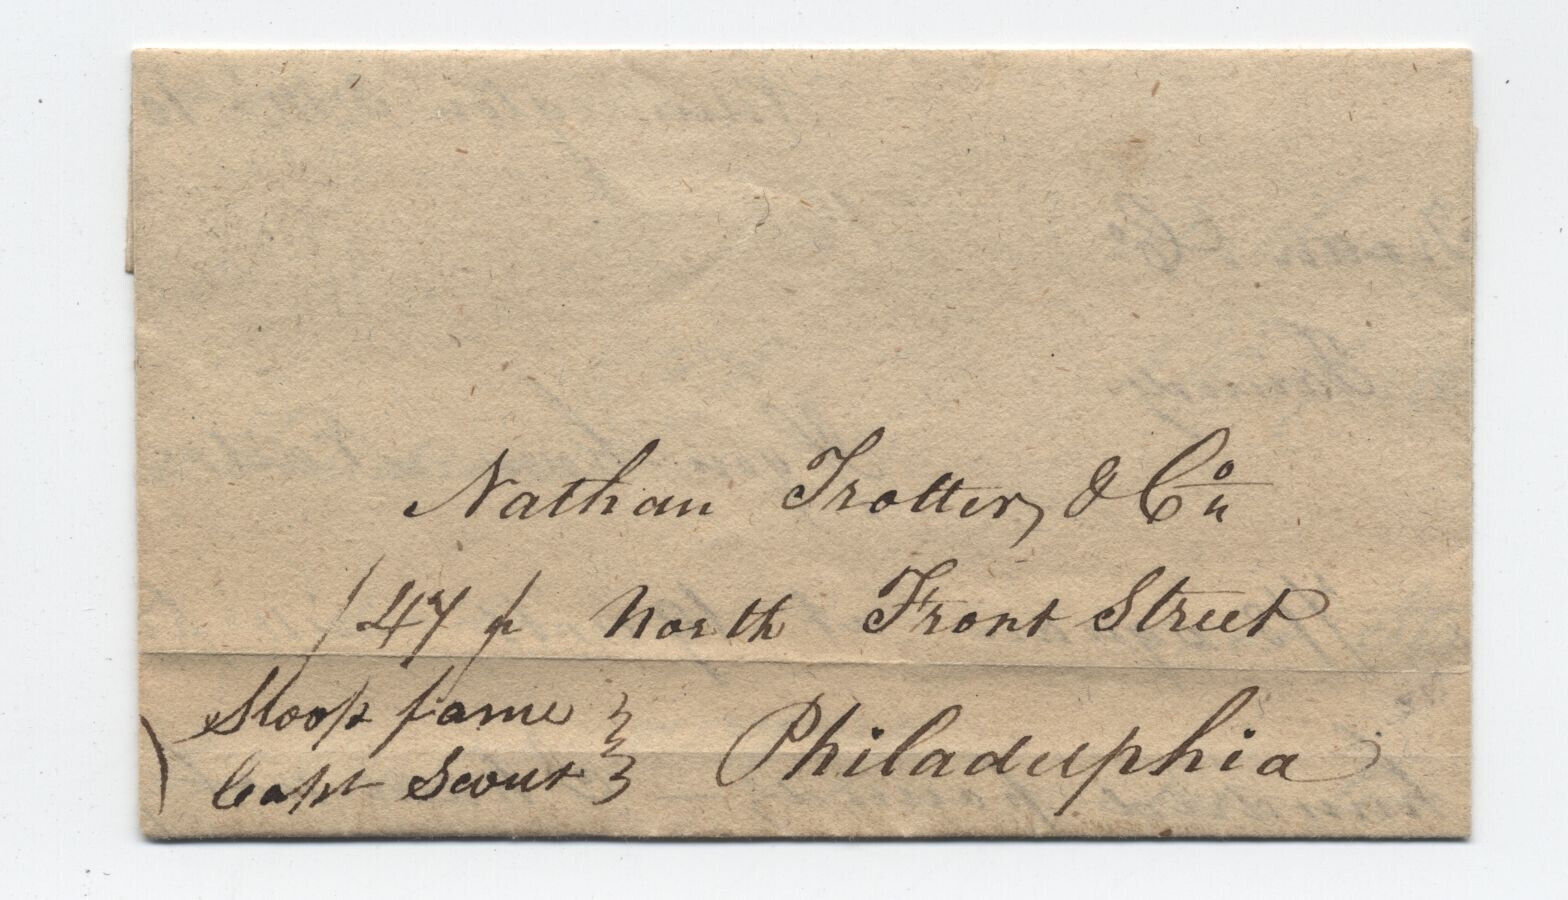 Nathan Trotter, & Co
47 North Front Street
Sloop fame
Capt Scout
Philadelphia